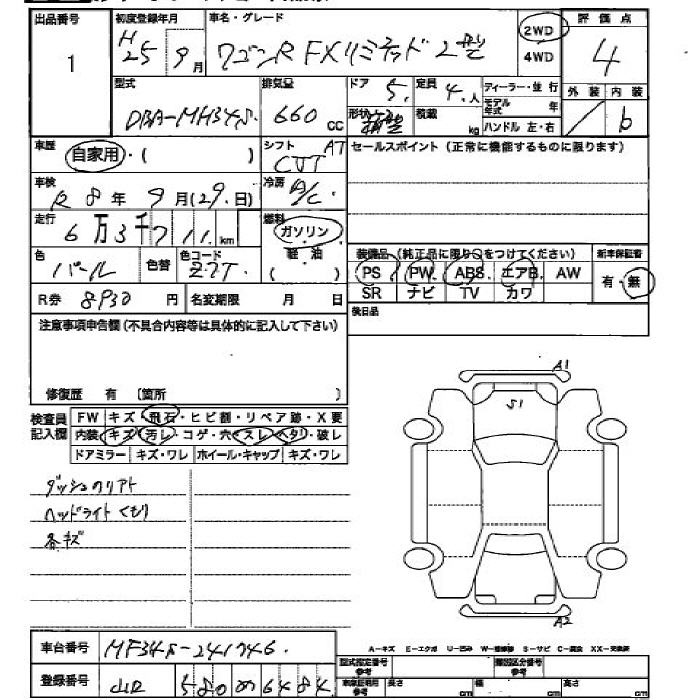 出品番号 初度登録年月 車名・グレード 評価点
1 H25 9月 ワゴンR FXリミテッド 2型 2WD 4WD 4
型式 排気量 ドア 5. 定員 4.人 ディーラー・並行 外装 内装
DBA-MH34S. 660 CC 形状 積載 kg モデル年式 年 ハンドル 左・右 / b
車歴 自家用・( ) シフト AT CVT セールスポイント (正常に機能するものに限ります)
車検 R8年 9月(29.日) 冷房 A/C
走行 6万3千711.km 燃料 ガソリン 軽・油
色 パール 色替 色コード Z7T. 装備品 (純正品に限り○をつけてください) 新車保証書
PS PW ABS エアB AW 有・無
R券 8930 円 名変期限 月 日 SR ナビ TV カワ
注意事項申告欄 (不具合内容等は具体的に記入して下さい) 後日品
修復歴 有 〔箇所 〕
検査員記入欄 FW キズ・飛石・ヒビ割・リペア跡・X要
内装 キズ・汚レ・コゲ・穴・スレ・ヘタリ・破レ
ドアミラー キズ・ワレ ホイール・キャップ キズ・ワレ
A1
S1
ダッシュのリアト
ヘッドライトくもり
各キズ
A2
A-キズ E-エクボ U-凹み S-サビ C-腐食 XX-交換済
車台番号 MF34S-241746.
登録番号 580 め 6484
型式指定番号 参考 類別区分番号 参考
車庫証明用 参考 長さ cm 幅 cm 高さ cm